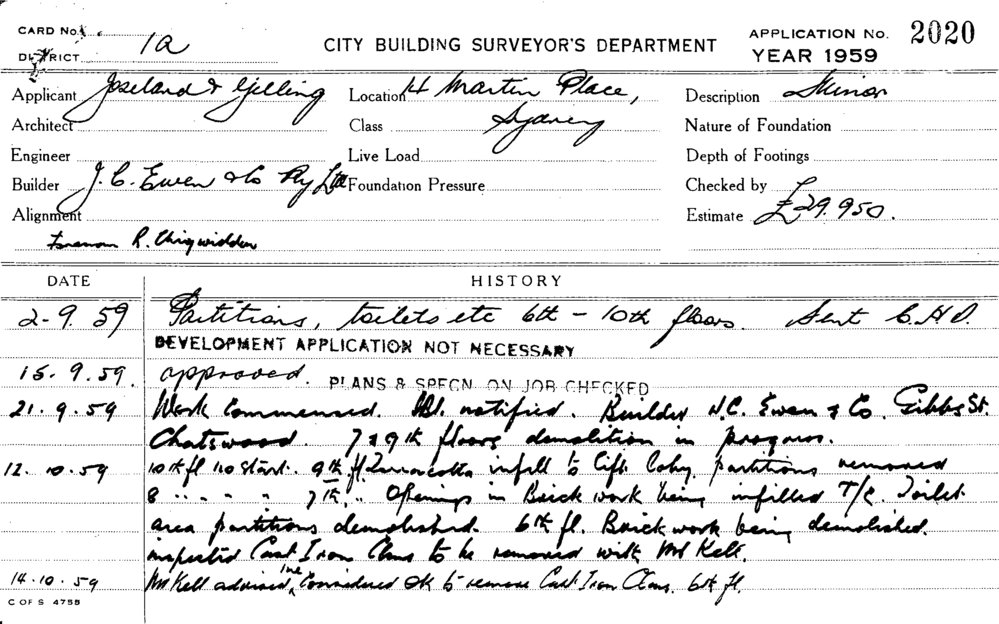 CARD No. 1a CITY BUILDING SURVEYOR'S DEPARTMENT APPLICATION No. 2020
DISTRICT YEAR 1959
Applicant Joseland & Gilling Location 4 Martin Place, Description Minor
Architect Class Sydney Nature of Foundation
Engineer Live Load Depth of Footings
Builder J. C. Ewen & Co Pty Ltd Foundation Pressure Checked by
Alignment Estimate £29.950.
Foreman R.
DATE HISTORY
2-9.59 Partitions, toilets etc 6th - 10th floors. Sent C.H.O.
DEVELOPMENT APPLICATION NOT NECESSARY
15.9.59. approved. PLANS & SPECN. ON JOB CHECKED
21.9.59 Work Commenced. notified. Builder Ewen & Co. Gibbs St.
Chatswood. 7 & 9th floors demolition in progress.
12.10.59 10th fl no start. 9th fl Terracotta infill to lift loby, partitions removed
8 " " " 7th " Openings in Brick work being infilled T/C. Toilet
area partitions demolished. 6th fl. Brickwork being demolished.
inspected Cast Iron to be removed with Mr Kell.
14.10.59 Mr Kell advised he considered ok to remove Cast Iron 6th fl.
C OF S 4755